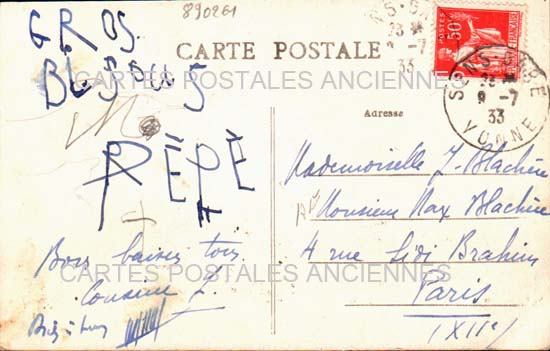 890261
GROS
BISSUS
PÉPÉ
CARTE POSTALE
CARTES POSTALES ANCIENNES
Bons baisers tous
Cousine J.
Adresse
Mademoiselle J. Blachère
Monsieur Max Blachère
4 rue Sidi Brahim
Paris
(XIIe)
CARTES POSTALES ANCIENNES
POSTES
FRANÇAISE
50c
23
9 -7
33
SENS
YONNE
23
9 -7
33